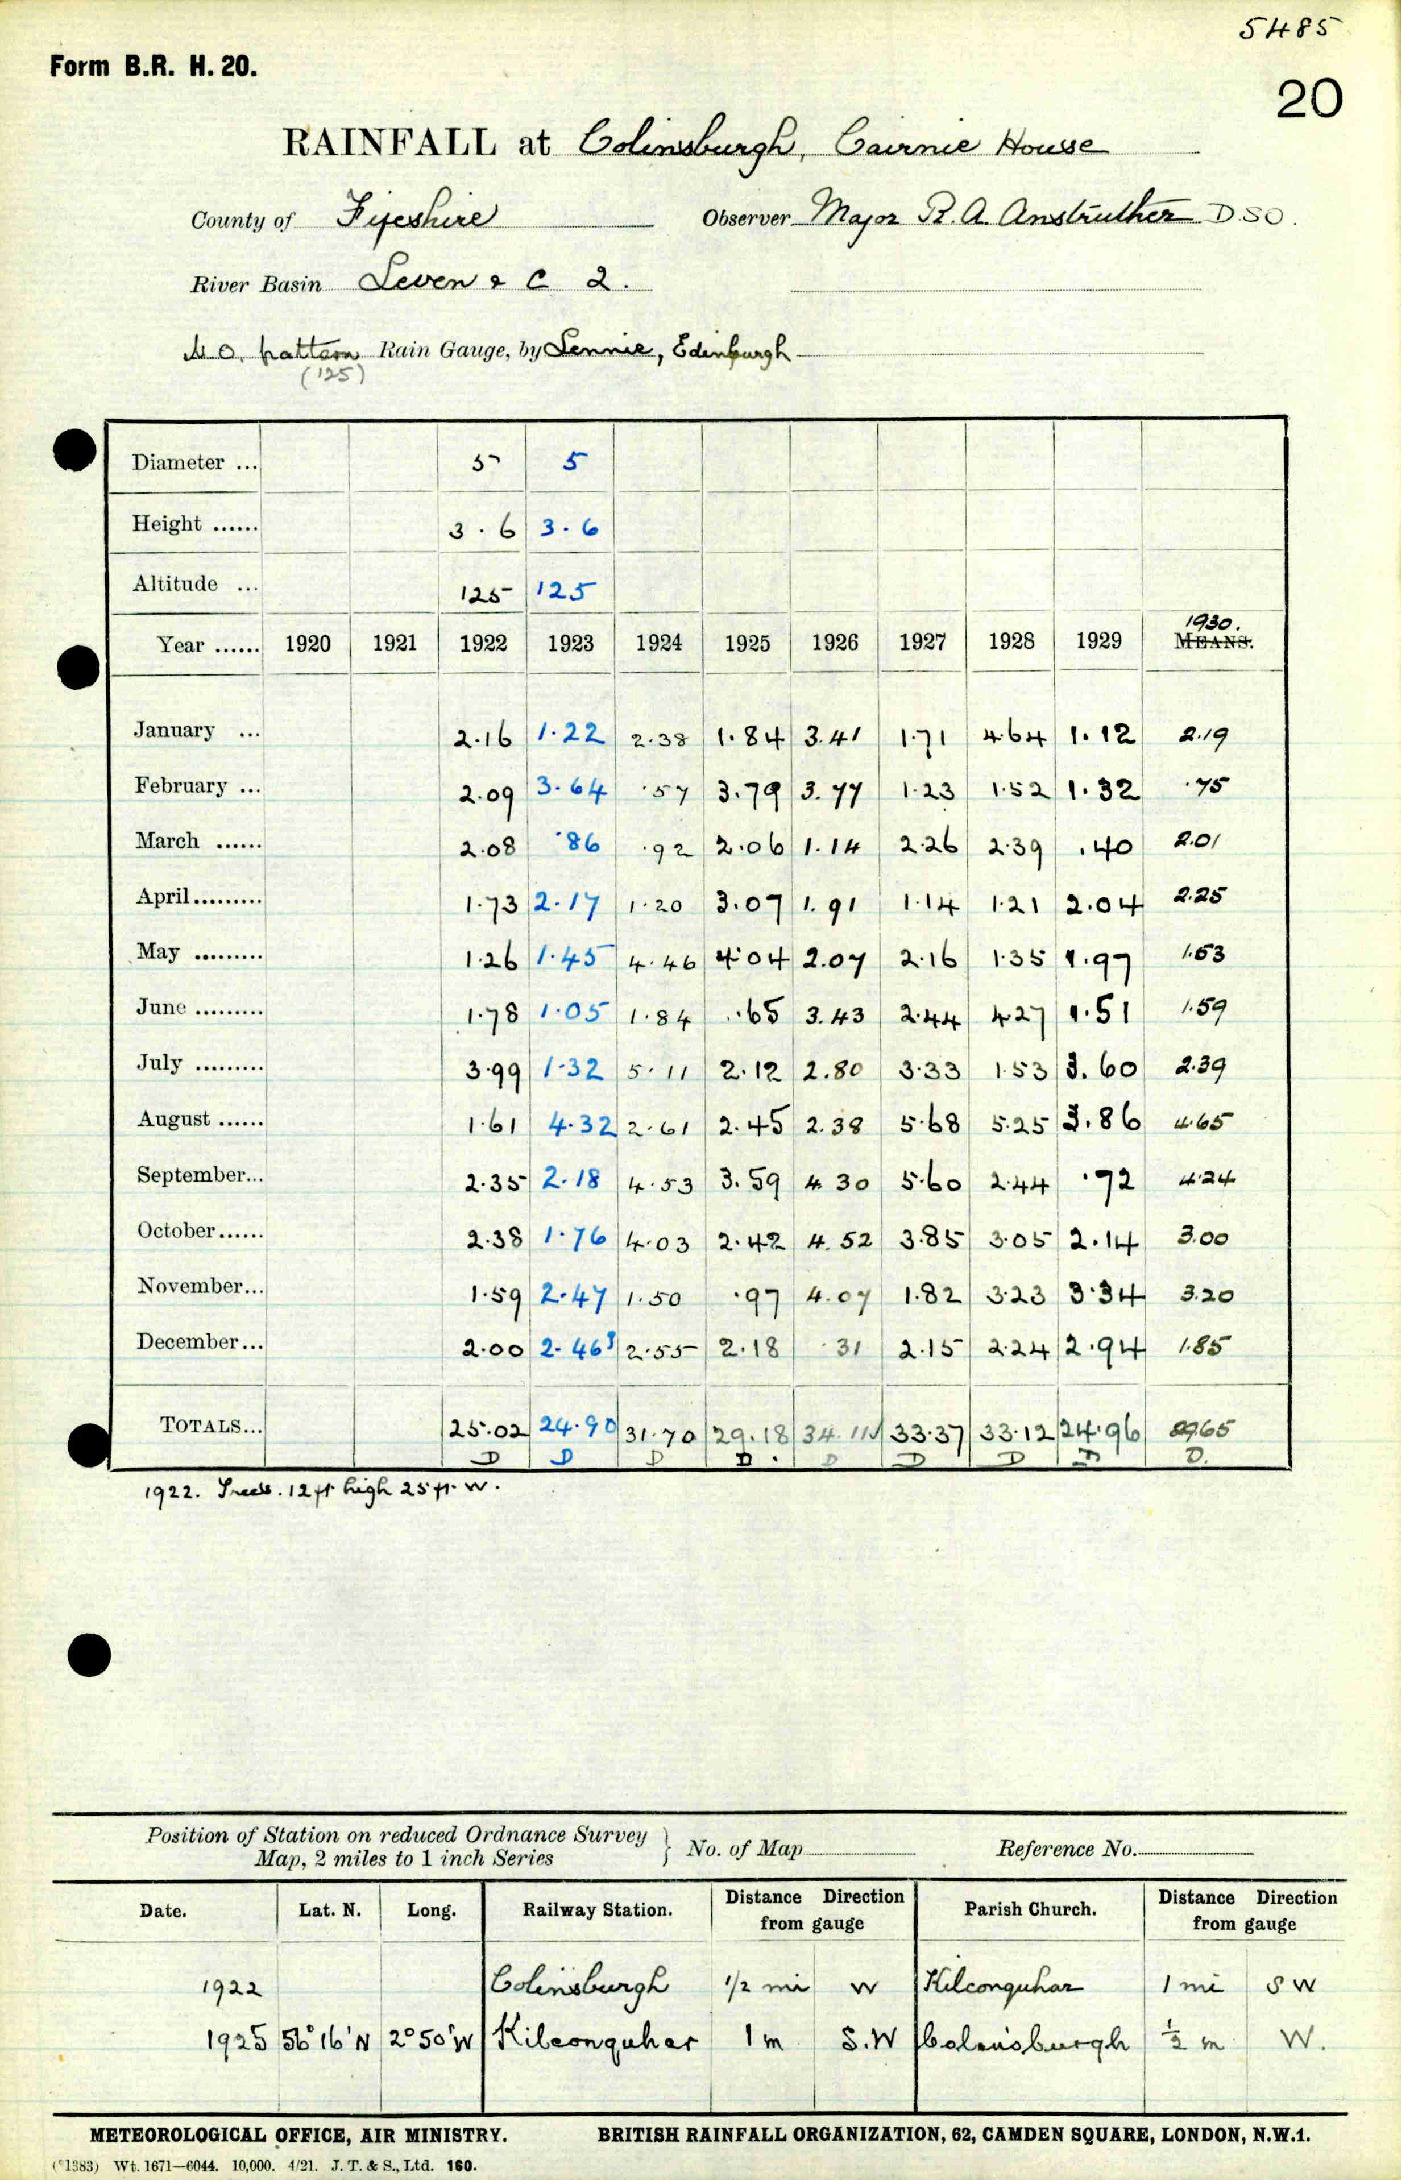 5485
Form B.R. H. 20.
20
RAINFALL at Colinsburgh, Cairnie House
County of Fifeshire Observer Major R. A. Anstruther D.S.O.
River Basin Leven & C 2.
M.O. pattern Rain Gauge, by Lennie, Edinburgh
(125)
Diameter ... 5 5
Height ...... 3.6 3.6
Altitude ... 125 125
1930.
Year ...... 1920 1921 1922 1923 1924 1925 1926 1927 1928 1929 MEANS.
January ... 2.16 1.22 2.38 1.84 3.41 1.71 4.64 1.12 2.19
February ... 2.09 3.64 .57 3.79 3.77 1.23 1.52 1.32 .75
March ...... 2.08 .86 .92 2.06 1.14 2.26 2.39 .40 2.01
April......... 1.73 2.17 1.20 3.07 1.91 1.14 1.21 2.04 2.25
May ......... 1.26 1.45 4.46 4.04 2.07 2.16 1.35 1.97 1.53
June ......... 1.78 1.05 1.84 .65 3.43 2.44 4.27 1.51 1.59
July ......... 3.99 1.32 5.11 2.12 2.80 3.33 1.53 3.60 2.39
August ...... 1.61 4.32 2.61 2.45 2.38 5.68 5.25 3.86 4.65
September... 2.35 2.18 4.53 3.59 4.30 5.60 2.44 .72 4.24
October...... 2.38 1.76 4.03 2.42 4.52 3.85 3.05 2.14 3.00
November... 1.59 2.47 1.50 .97 4.07 1.82 3.23 3.34 3.20
December... 2.00 2.46 2.55 2.18 .31 2.15 2.24 2.94 1.85
TOTALS... 25.02 24.90 31.70 29.18 34.11 33.37 33.12 24.96 29.65
D D D D. D D D D D.
1922. Trees. 12 ft high 25 ft. W.
Position of Station on reduced Ordnance Survey
Map, 2 miles to 1 inch Series } No. of Map Reference No.
Date. Lat. N. Long. Railway Station. Distance Direction from gauge Parish Church. Distance Direction from gauge
1922 Colinsburgh 1/2 mi W Kilconquhar 1 mi S W
1925 56° 16' N 2° 50' W Kilconquhar 1 m S.W Colinsburgh 1/2 m W.
METEOROLOGICAL OFFICE, AIR MINISTRY. BRITISH RAINFALL ORGANIZATION, 62, CAMDEN SQUARE, LONDON, N.W.1.
(*1383) Wt. 1671—6044. 10,000. 4/21. J. T. & S., Ltd. 160.